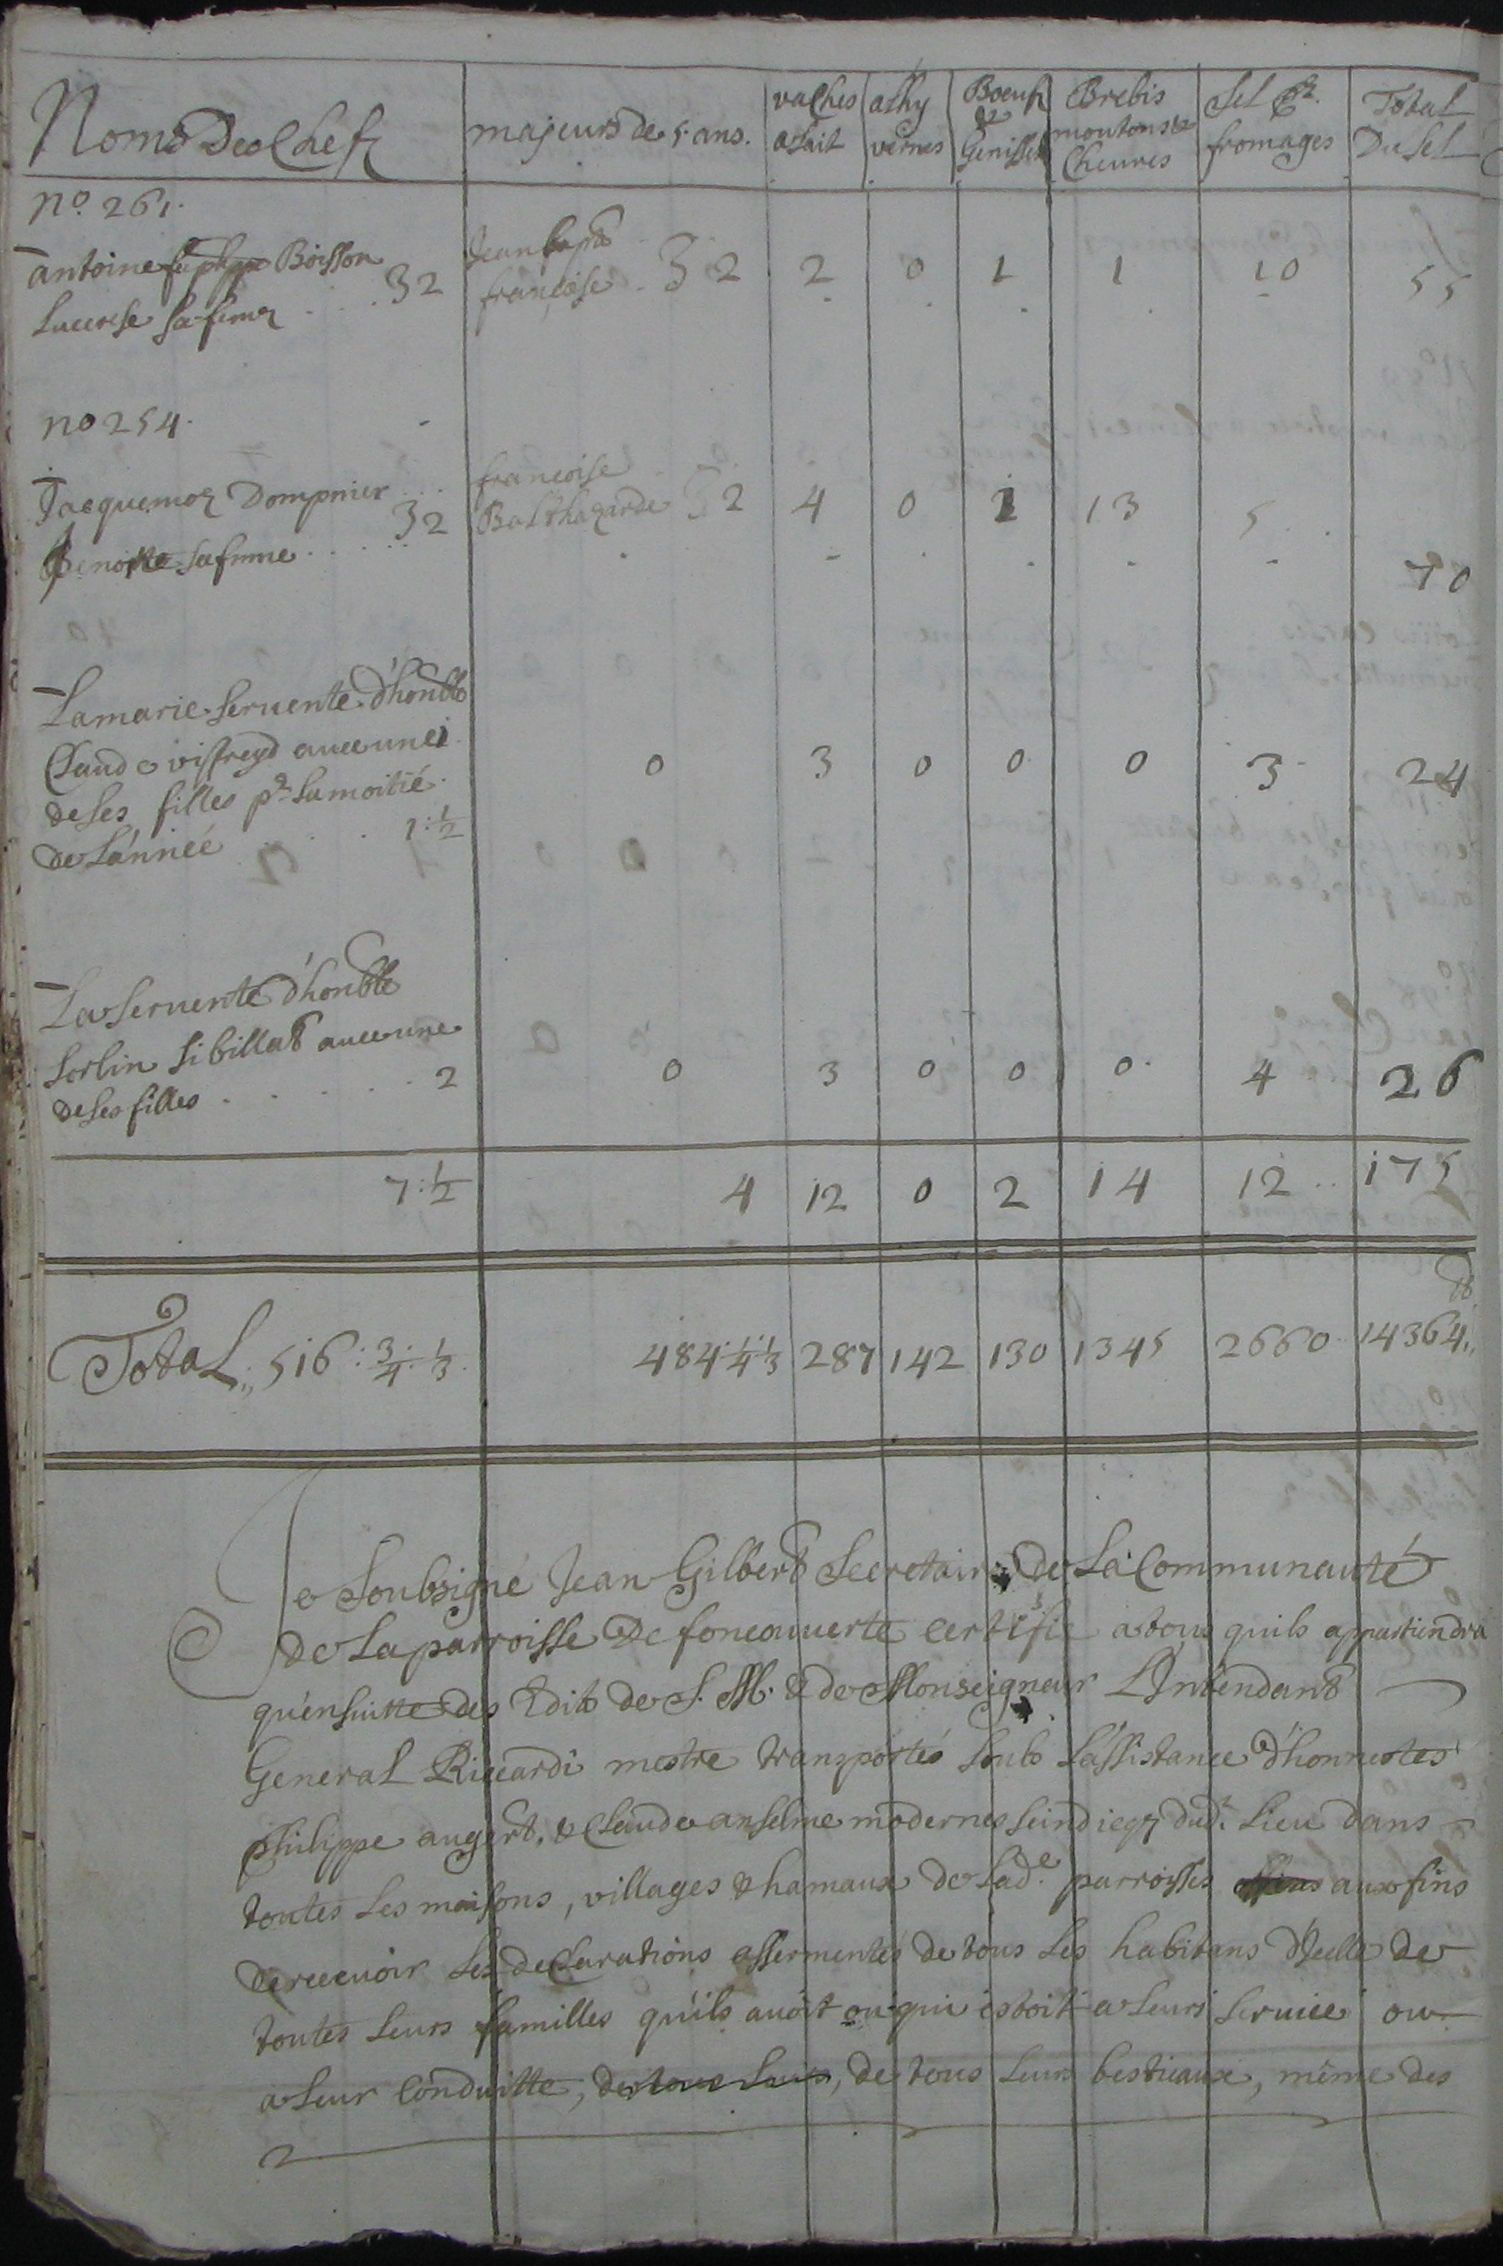 Noms Des Chefz majeurs de 5 ans. vaches a lait athy vernes Boeufz & Genisses Brebis moutons & Chevres Sel pr. fromages Total Du Sel
No. 261.
Antoine Boisson Lucresse sa feme . . . 32 Jean bapt francoise . 32 2 0 1 1 10 55
no 254.
Jacquemoz Dompnier Benoitte sa feme . . . 32 francoise Balthazarde 32 4 0 1 13 5 70
La marie servente d'honble
Claude vistreyd avec une
de ses filles pr. la moitié
de L'année . . . 1:½ 0 3 0 0 0 3 24
La servente d'honble
sorlin sibillat avec une
de ses filles . . . . . 2 0 3 0 0 0 4 26
7:½ 4 12 0 2 14 12 175
lt
Total,, 516:¾:⅓ 484:¼:⅓ 287 142 130 1345 2660 14364,,
Je Soubsigné Jean Gilbert Secretaire de La Communauté
de La parroisse De foncouverte certifie a tous quils appartiendra
qu'ensuitte des Edits de S. M. & de Monseigneur L'Intendant
General Riccardi m'estre transportés soubs L'assistance d'honnestes
philippe augert, & Claude anselme modernes scindicqz dud. Lieu dans
toutes Les maisons, villages & hamaux de Lade. parroisses aux fins
de recevoir Les declarations assermentés de tous Les habitans d'Icelle de
toutes Leurs familles qu'ils avoit ou qui estoit a Leurs service ou
a Leur conduitte, de tous Leurs bestieaux, même des